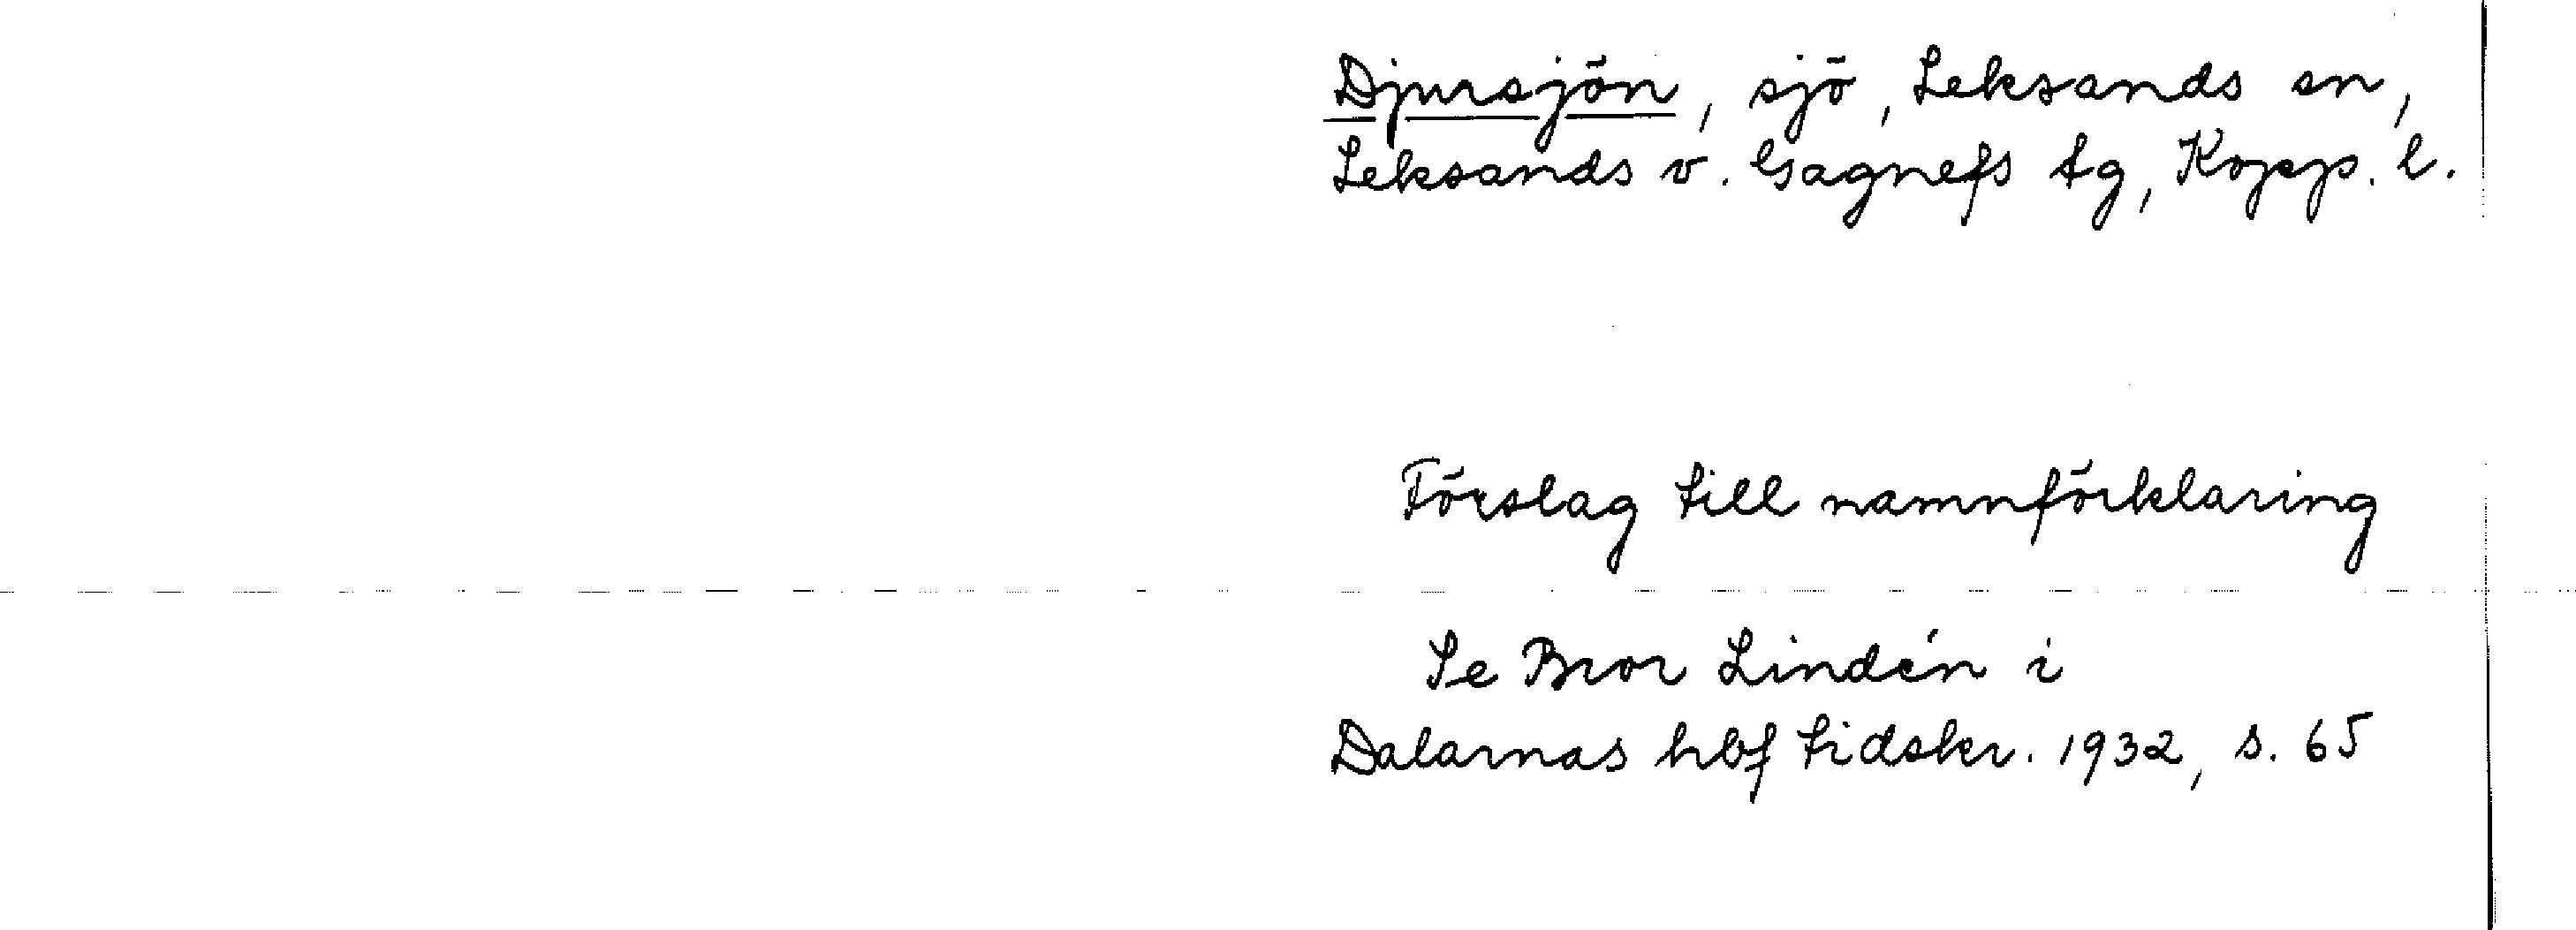 Djursjön, sjö, Leksands sn,
Leksands o. Gagnefs tg, Kopp. l.
Förslag till namnförklaring
Se Bror Lindén i
Dalarnas hbf tidskr. 1932, s. 65